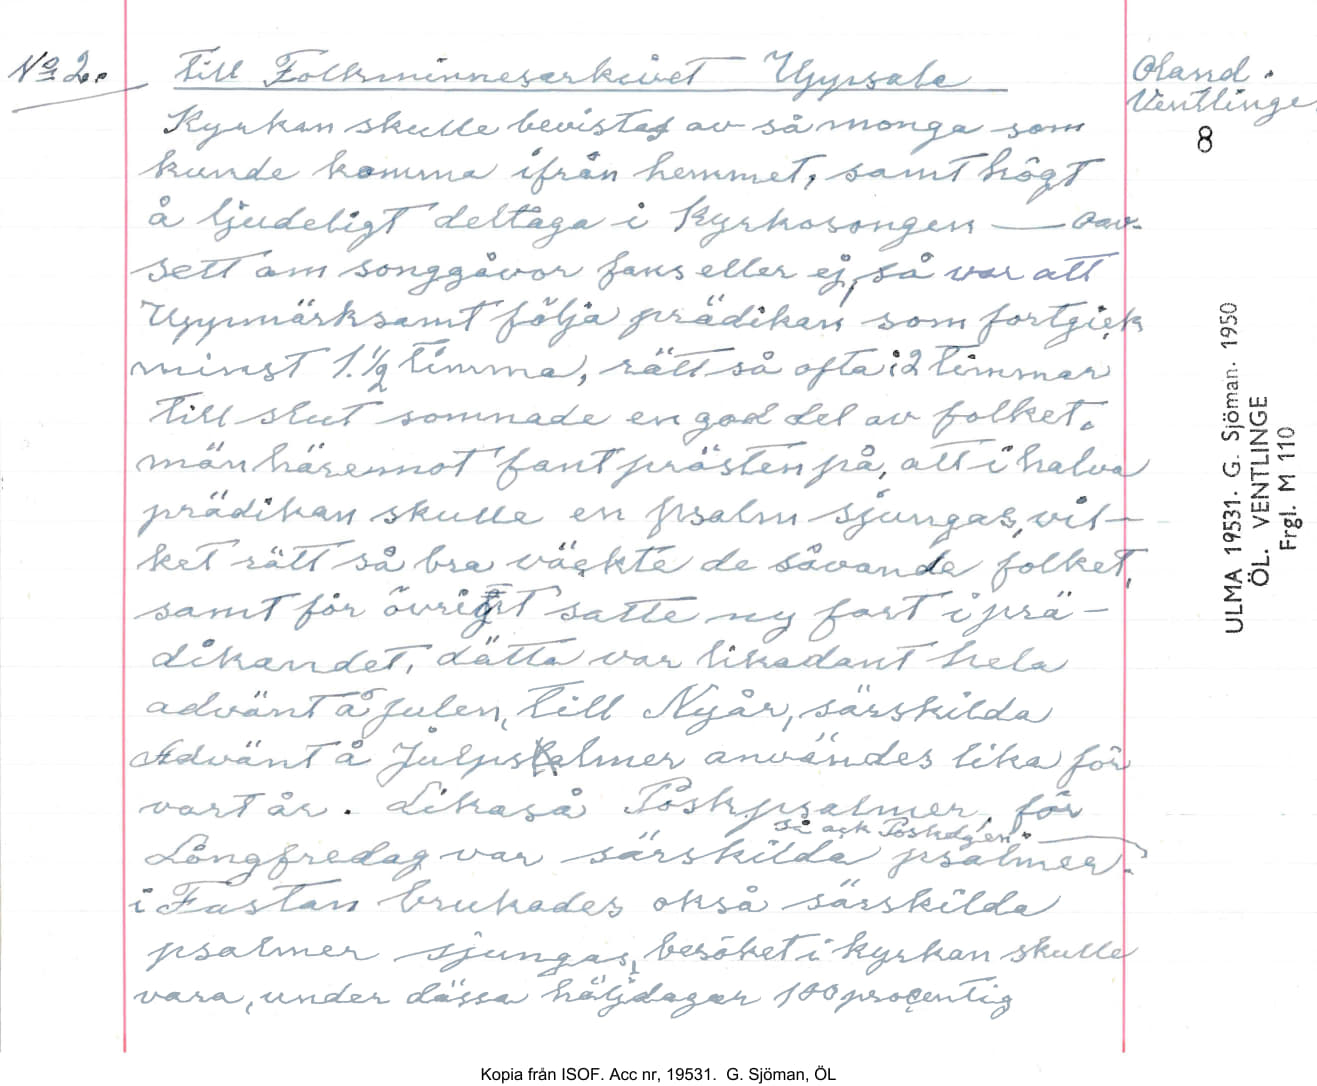 No 2.
Till Folksminnesarkivet Uppsala
Öland.
Ventlinge
8
Kyrkan skulle bevistas av så monga som
kunde komma ifrån hemmet, samt högt
å ljudeligt deltaga i Kyrkosongen — oav-
sett om songgåvor fans eller ej, så var att
Uppmärksamt följa prädikan som fortgick
minst 1.½ timma, rätt så ofta i 2 timmar
till slut somnade en god del av folket.
män häremot fant prästen på, att i halva
prädikan skulle en psalm sjungas, vil-
ket rätt så bra väckte de såvande folket,
samt för övrigt satte ny fart i prä-
dikandet, dätta var likadant hela
advänt å julen, till Nyår, särskilda
Advänt å Julpsalmer användes lika för
vart år. Likaså Påskpsalmer, för
så ock Påskdgen.
Långfredag var särskilda psalmer.
i Fastan brukades okså särskilda
psalmer sjungas, besöket i kyrkan skulle
vara, under dässa häljdagar 100 procentig
ULMA 19531. G. Sjöman. 1950
ÖL. VENTLINGE
Frgl. M 110
Kopia från ISOF. Acc nr, 19531. G. Sjöman, ÖL